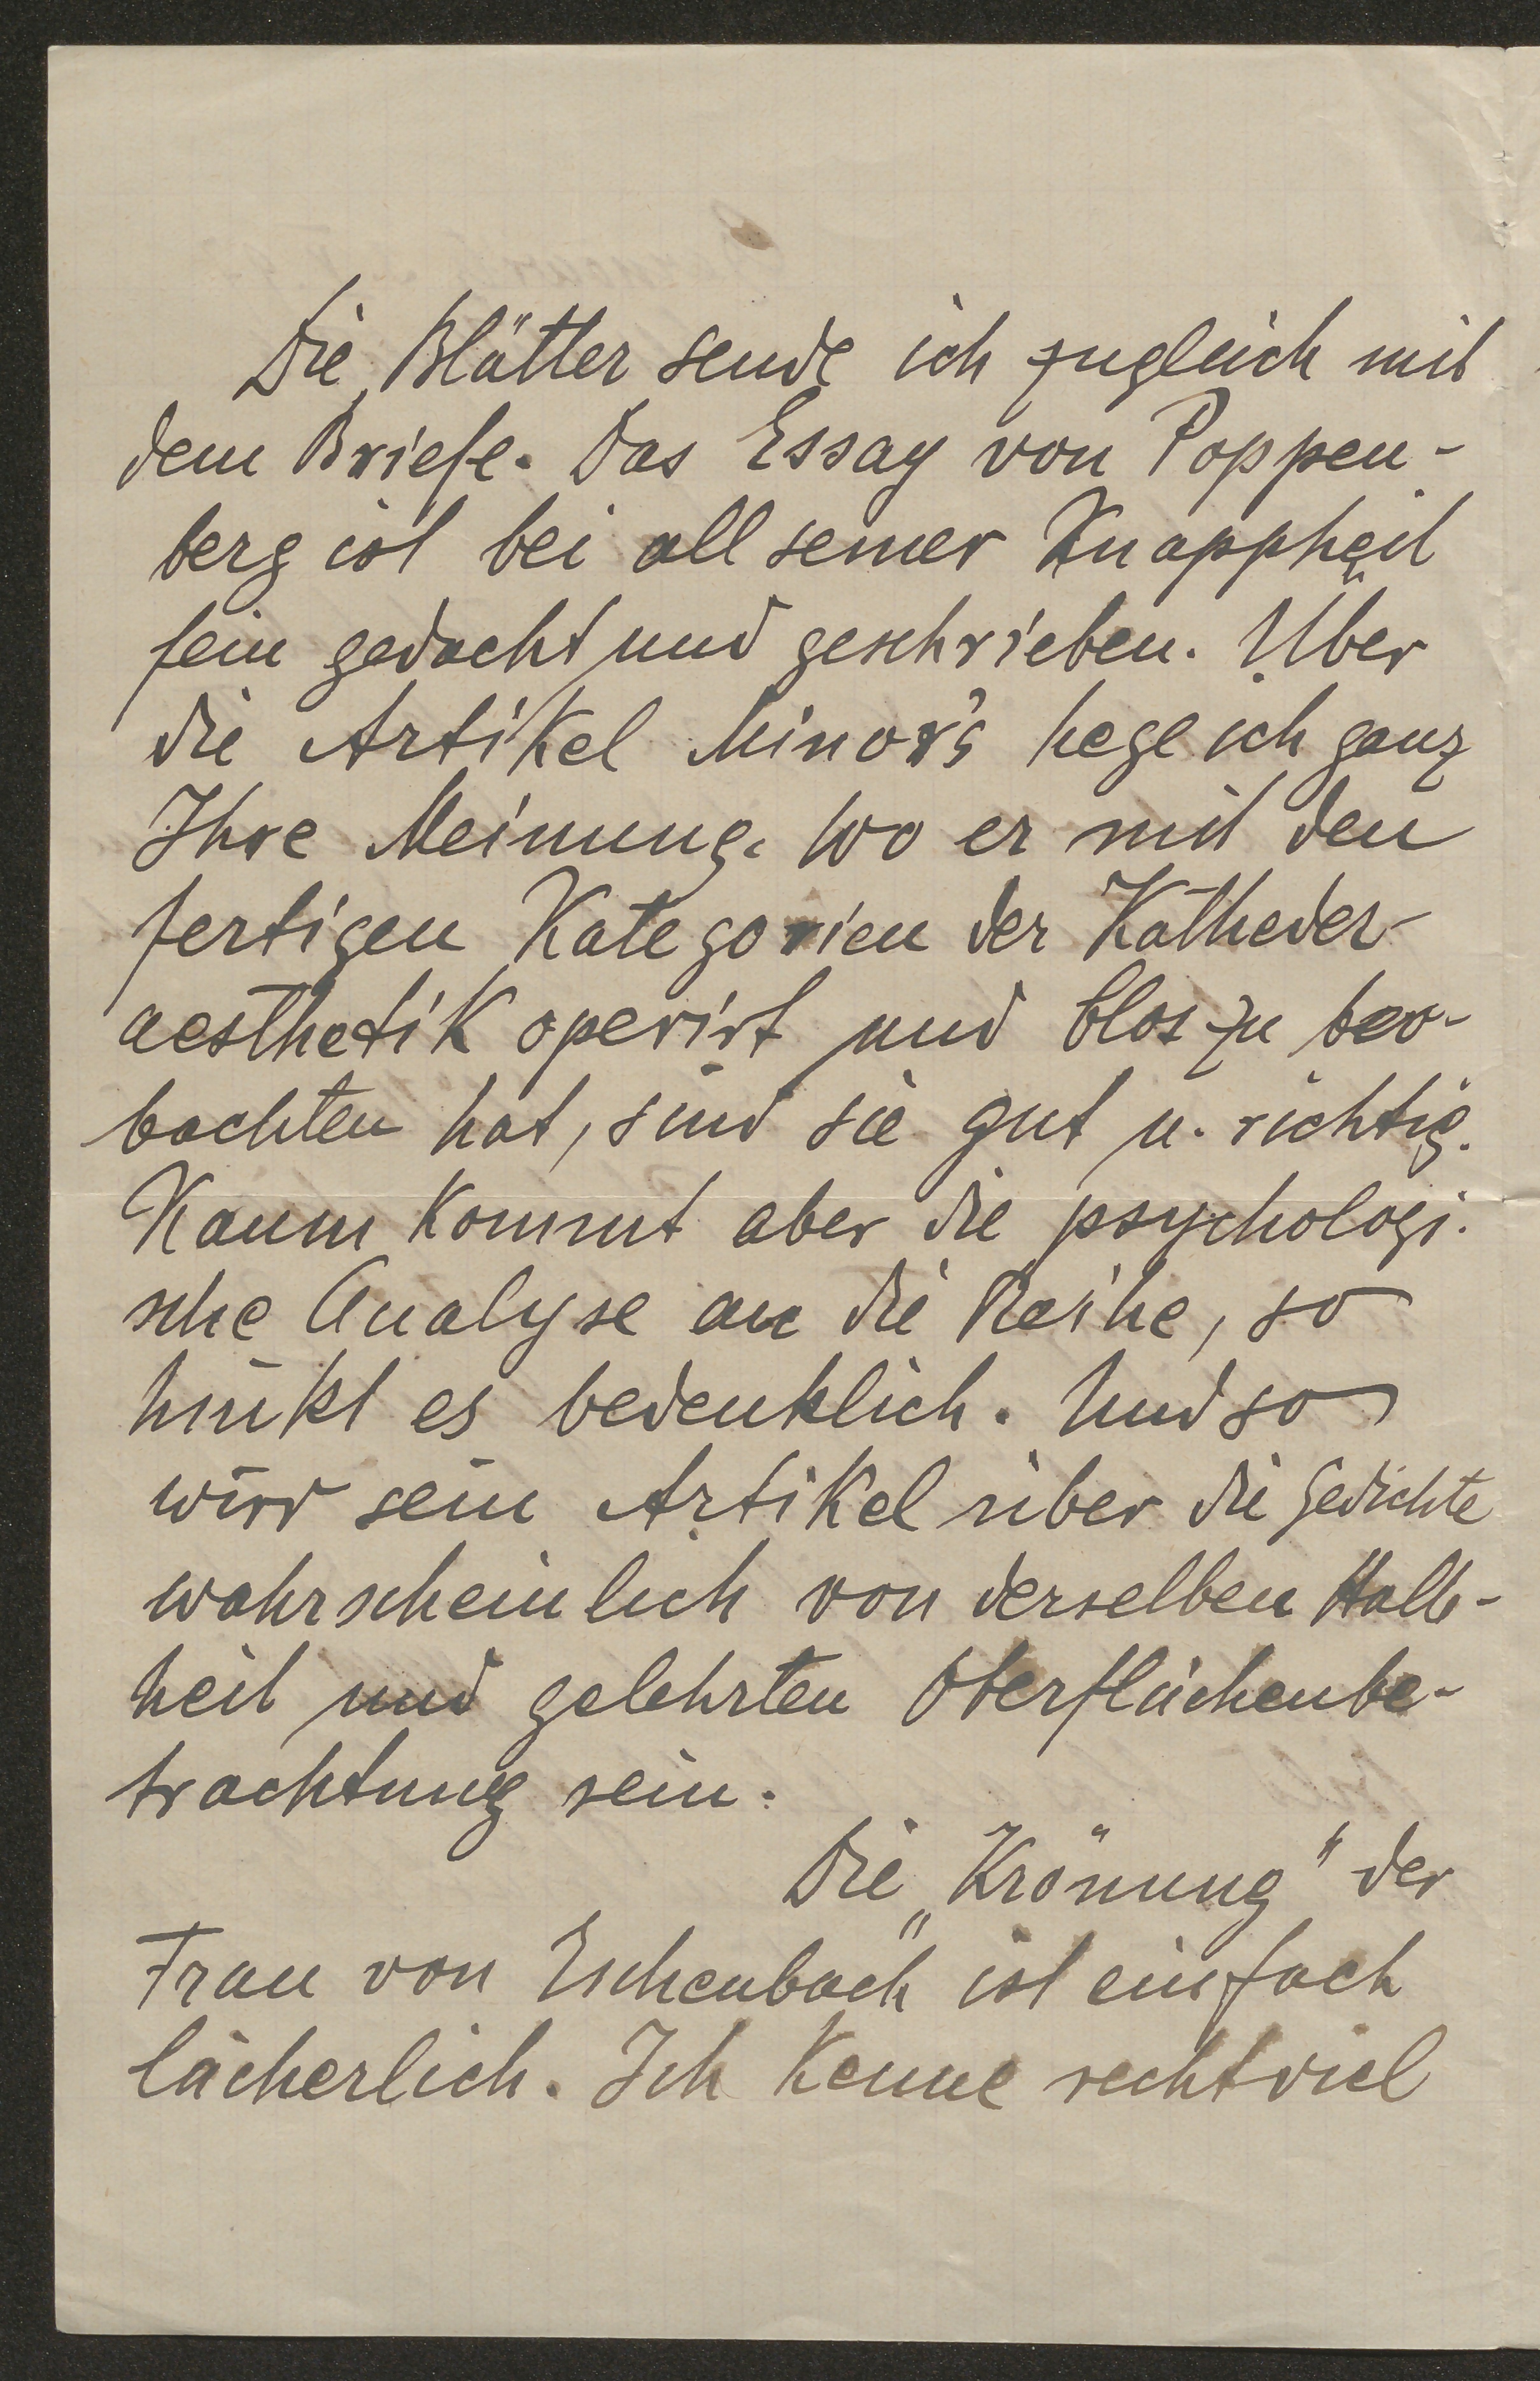 Die Blätter sende ich zugleich mit
dem Briefe. Das Essay von Poppen-
berg ist bei all seiner Knappheit
fein gedacht und geschrieben. Über
die Artikel Minor's hege ich ganz
Ihre Meinung. Wo er mit den
fertigen Kategorien der Katheder-
aesthetik operirt und blos zu beo-
bachten hat, sind sie gut u. richtig.
Kaum kommt aber die psychologi-
sche Analyse an die Reihe, so
hinkt es bedenklich. Und so
wird sein Artikel über die Gedichte
wahrscheinlich von derselben Halb-
heit und gelehrten Oberflächenbe-
trachtung sein.
Die „Krönung" der
Frau von Eschenbach ist einfach
lächerlich. Ich kenne recht viel